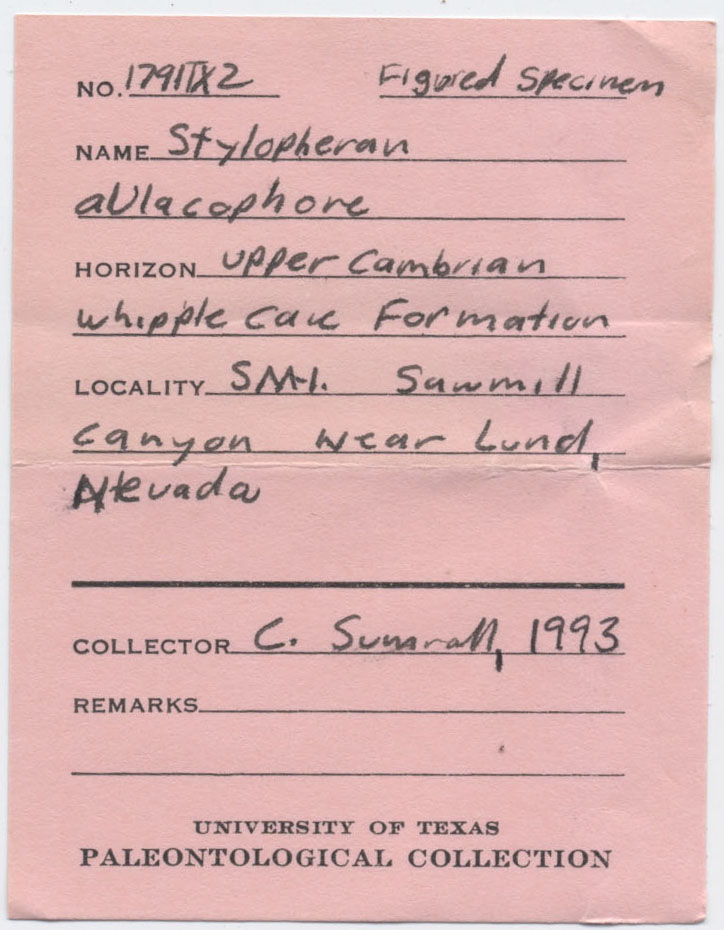 NO. 1791TX2 Figured Specimen
NAME Stylopheran
aUlacophore
HORIZON upper Cambrian
Whipple Cave Formation
LOCALITY SM-1. Sawmill
Canyon Near Lund,
Nevada
COLLECTOR C. Sumrall, 1993
REMARKS
UNIVERSITY OF TEXAS
PALEONTOLOGICAL COLLECTION